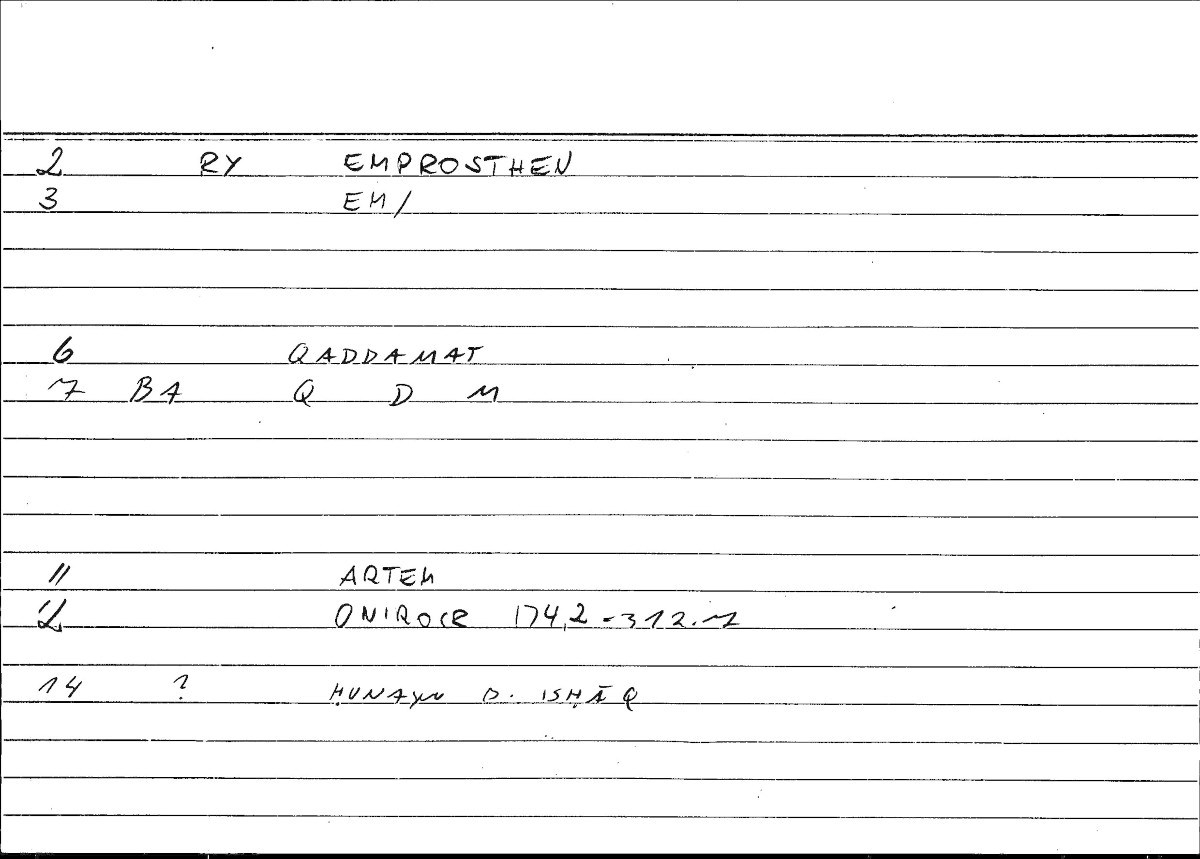 2 RY EMPROSTHEN
3 EM/
6 QADDAMAT
7 BA Q D M
11 ARTEM
12 ONIROCR 174,2 = 312.7
14 ? ḤUNAYN B. ISḤĀQ